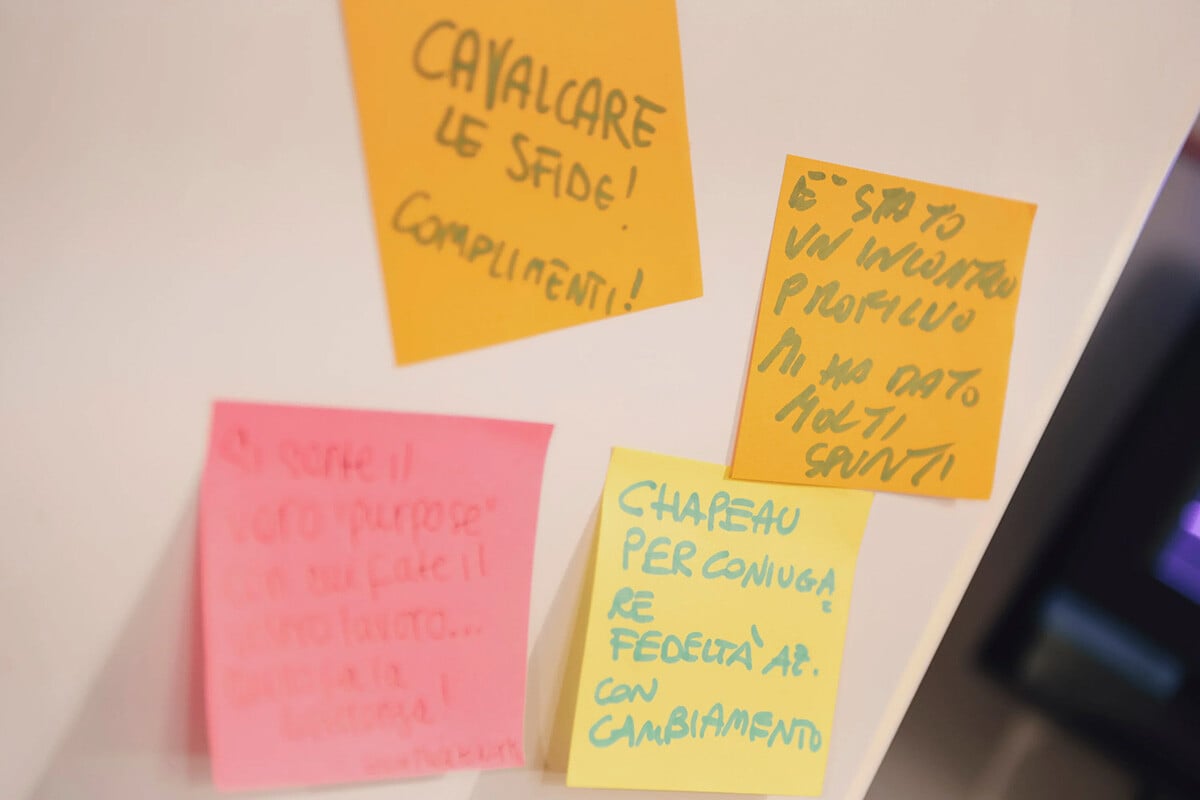 CAVALCARE
LE SFIDE!
COMPLIMENTI!
È STATO
UN INCONTRO
PROFICUO
MI HA DATO
MOLTI
SPUNTI
Si sente il
"purpose"
con cui fate il
vostro lavoro...
CHAPEAU
PER CONIUGA
RE
FEDELTÀ AZ.
CON
CAMBIAMENTO